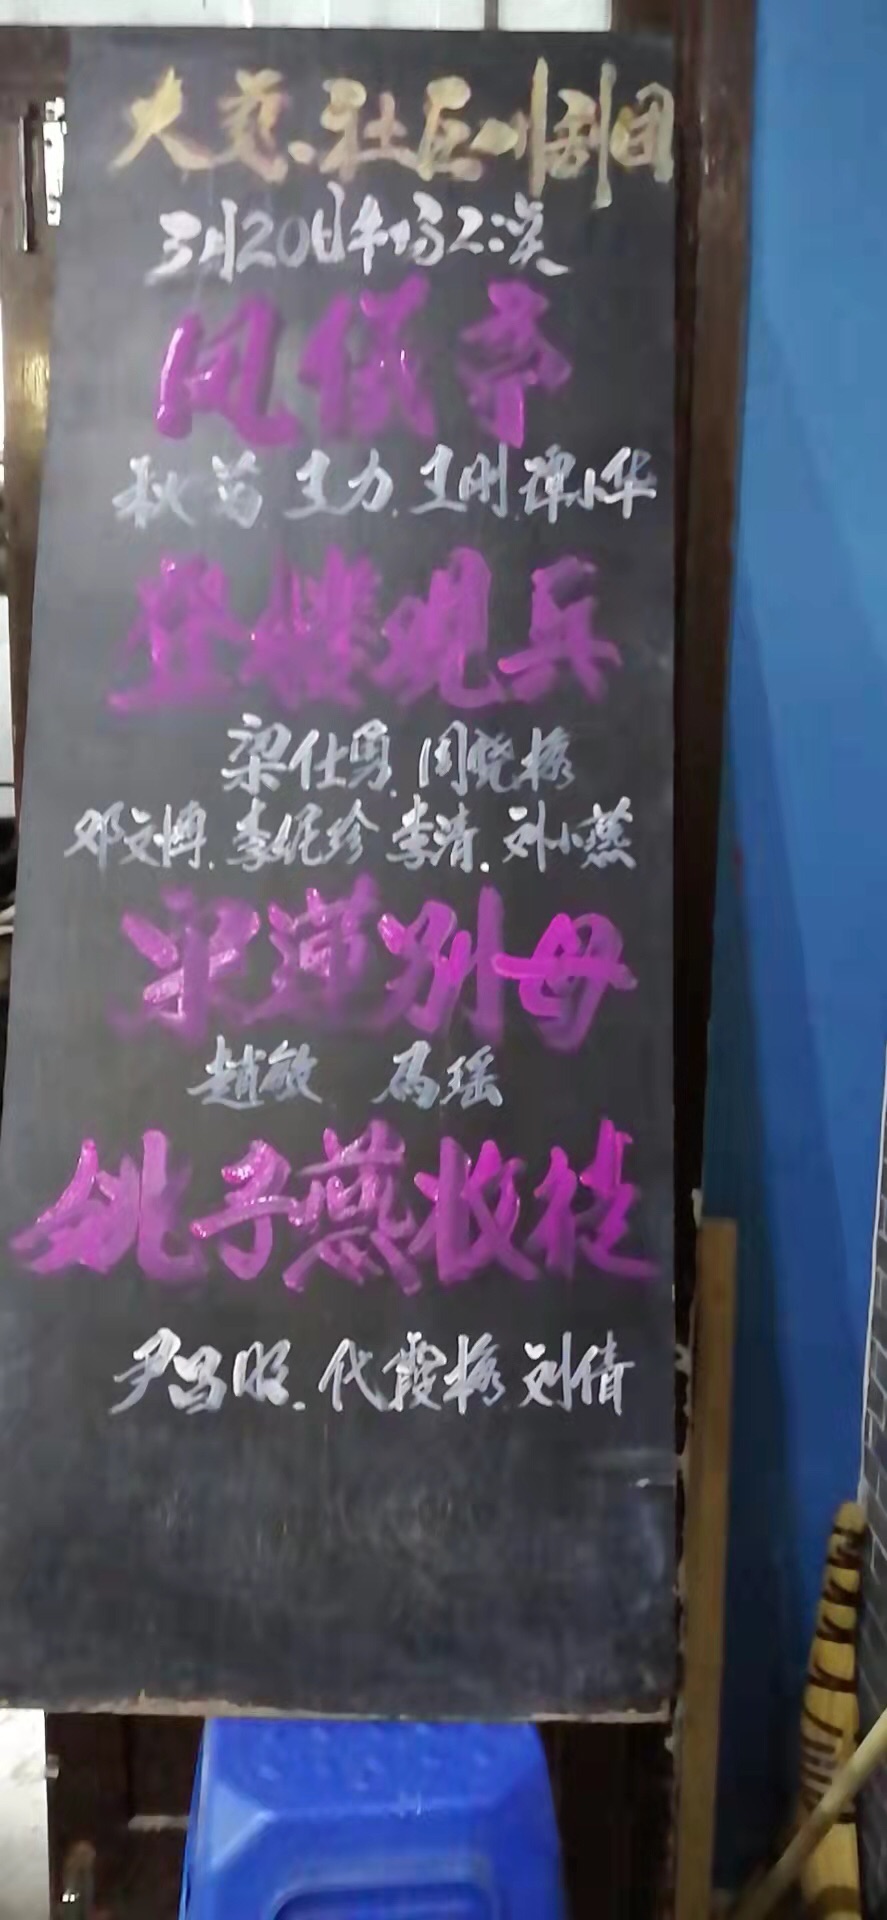 大慈.社区川剧团
3月20日本场公演
凤仪亭
秋苗.王力.王刚.谭小华
登楼观兵
梁仕勇.周晓梅
邓文博.李妮珍.李清.刘小燕
采莲别母
赵敏 马瑶
姚子燕放裙
尹昌明.代霞梅.刘倩